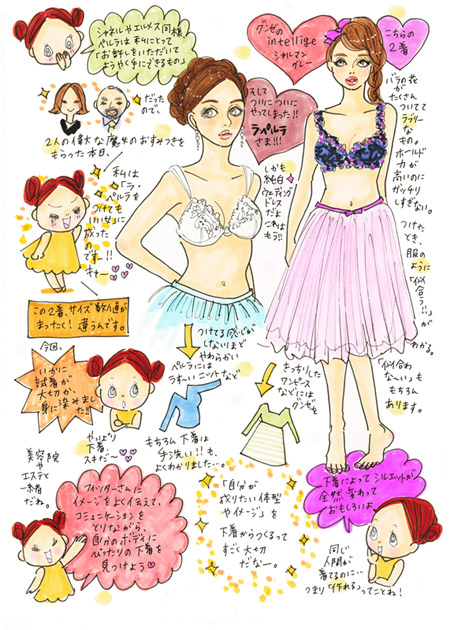 シャネルやエルメス同様
ペルラは私にとって
「お許しをいただいて
ようやく手にできるもの」
だった
ので、
2人の偉大な魔女のおすみつきを
もらった本日、
私は
「ラ・
ペルラを
つけても
いい女」に
放った
のです!!
オホー
この2着、サイズ数値が
まったく!違うんです。
そして
ついについに
やってしまった!!
ラペルラ
さま!!!
しかも
純白
ウェディング
ドレス
だよ
これは
もう!!
グンゼの
intellige
シャルマン
グレー
こちらの
2着
バラの花が
たくさん
ついてて
ラブリー
なもの。
ホールド
力が
高いのに
ガッチリ
しすぎない。
つけた
とき、
服の
ように
「似合
う…」が
わかる。
「似合わ
な〜い」も
もちろん
あります。
つけてる感じが
しないほど
やわらかい
ペルラには
うす〜いニットなど
きっちりした
ワンピース
などには
グンゼを
今回、
いかに
試着が
大切か、
身に染みました!!
やっぱり
下着
スキだー
もちろん下着は
手洗い!!も、
よくわかりました…。
美容院
や
エステと
一緒
だね。
フィッターさんに
イメージをよく伝えて、
コミュニケーションを
とりながら、
自分のボディに
ぴったりの下着を
見つけよう
「自分が
成りたい体型
やイメージ」を
下着からつくるって
すごく大切
だなー。
下着によってシルエットが
全然変わって
おもしろいよ
同じ
人間が
着てるのに…
つまり「作れる」ってことね!